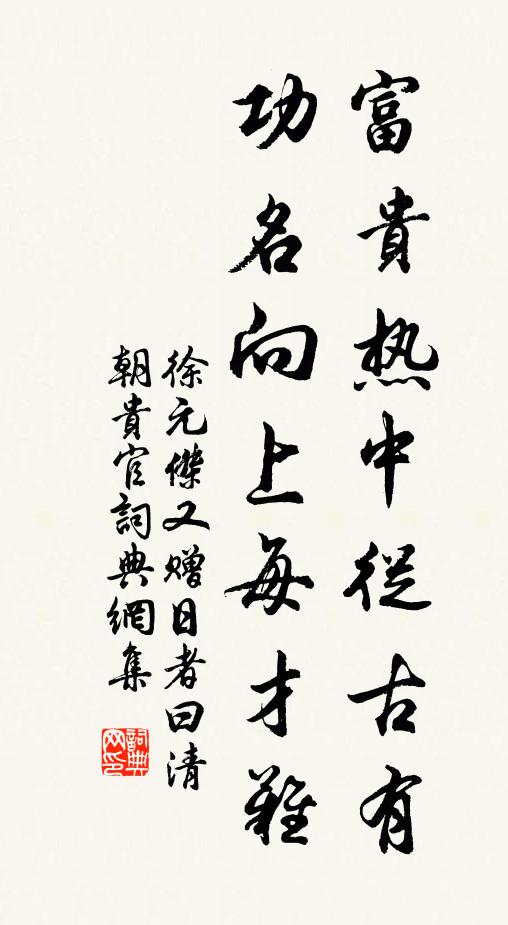 富貴热中從古有
功名向上每才難
徐元傑又赠日者曰清
朝貴官詞典網集
詞典网印